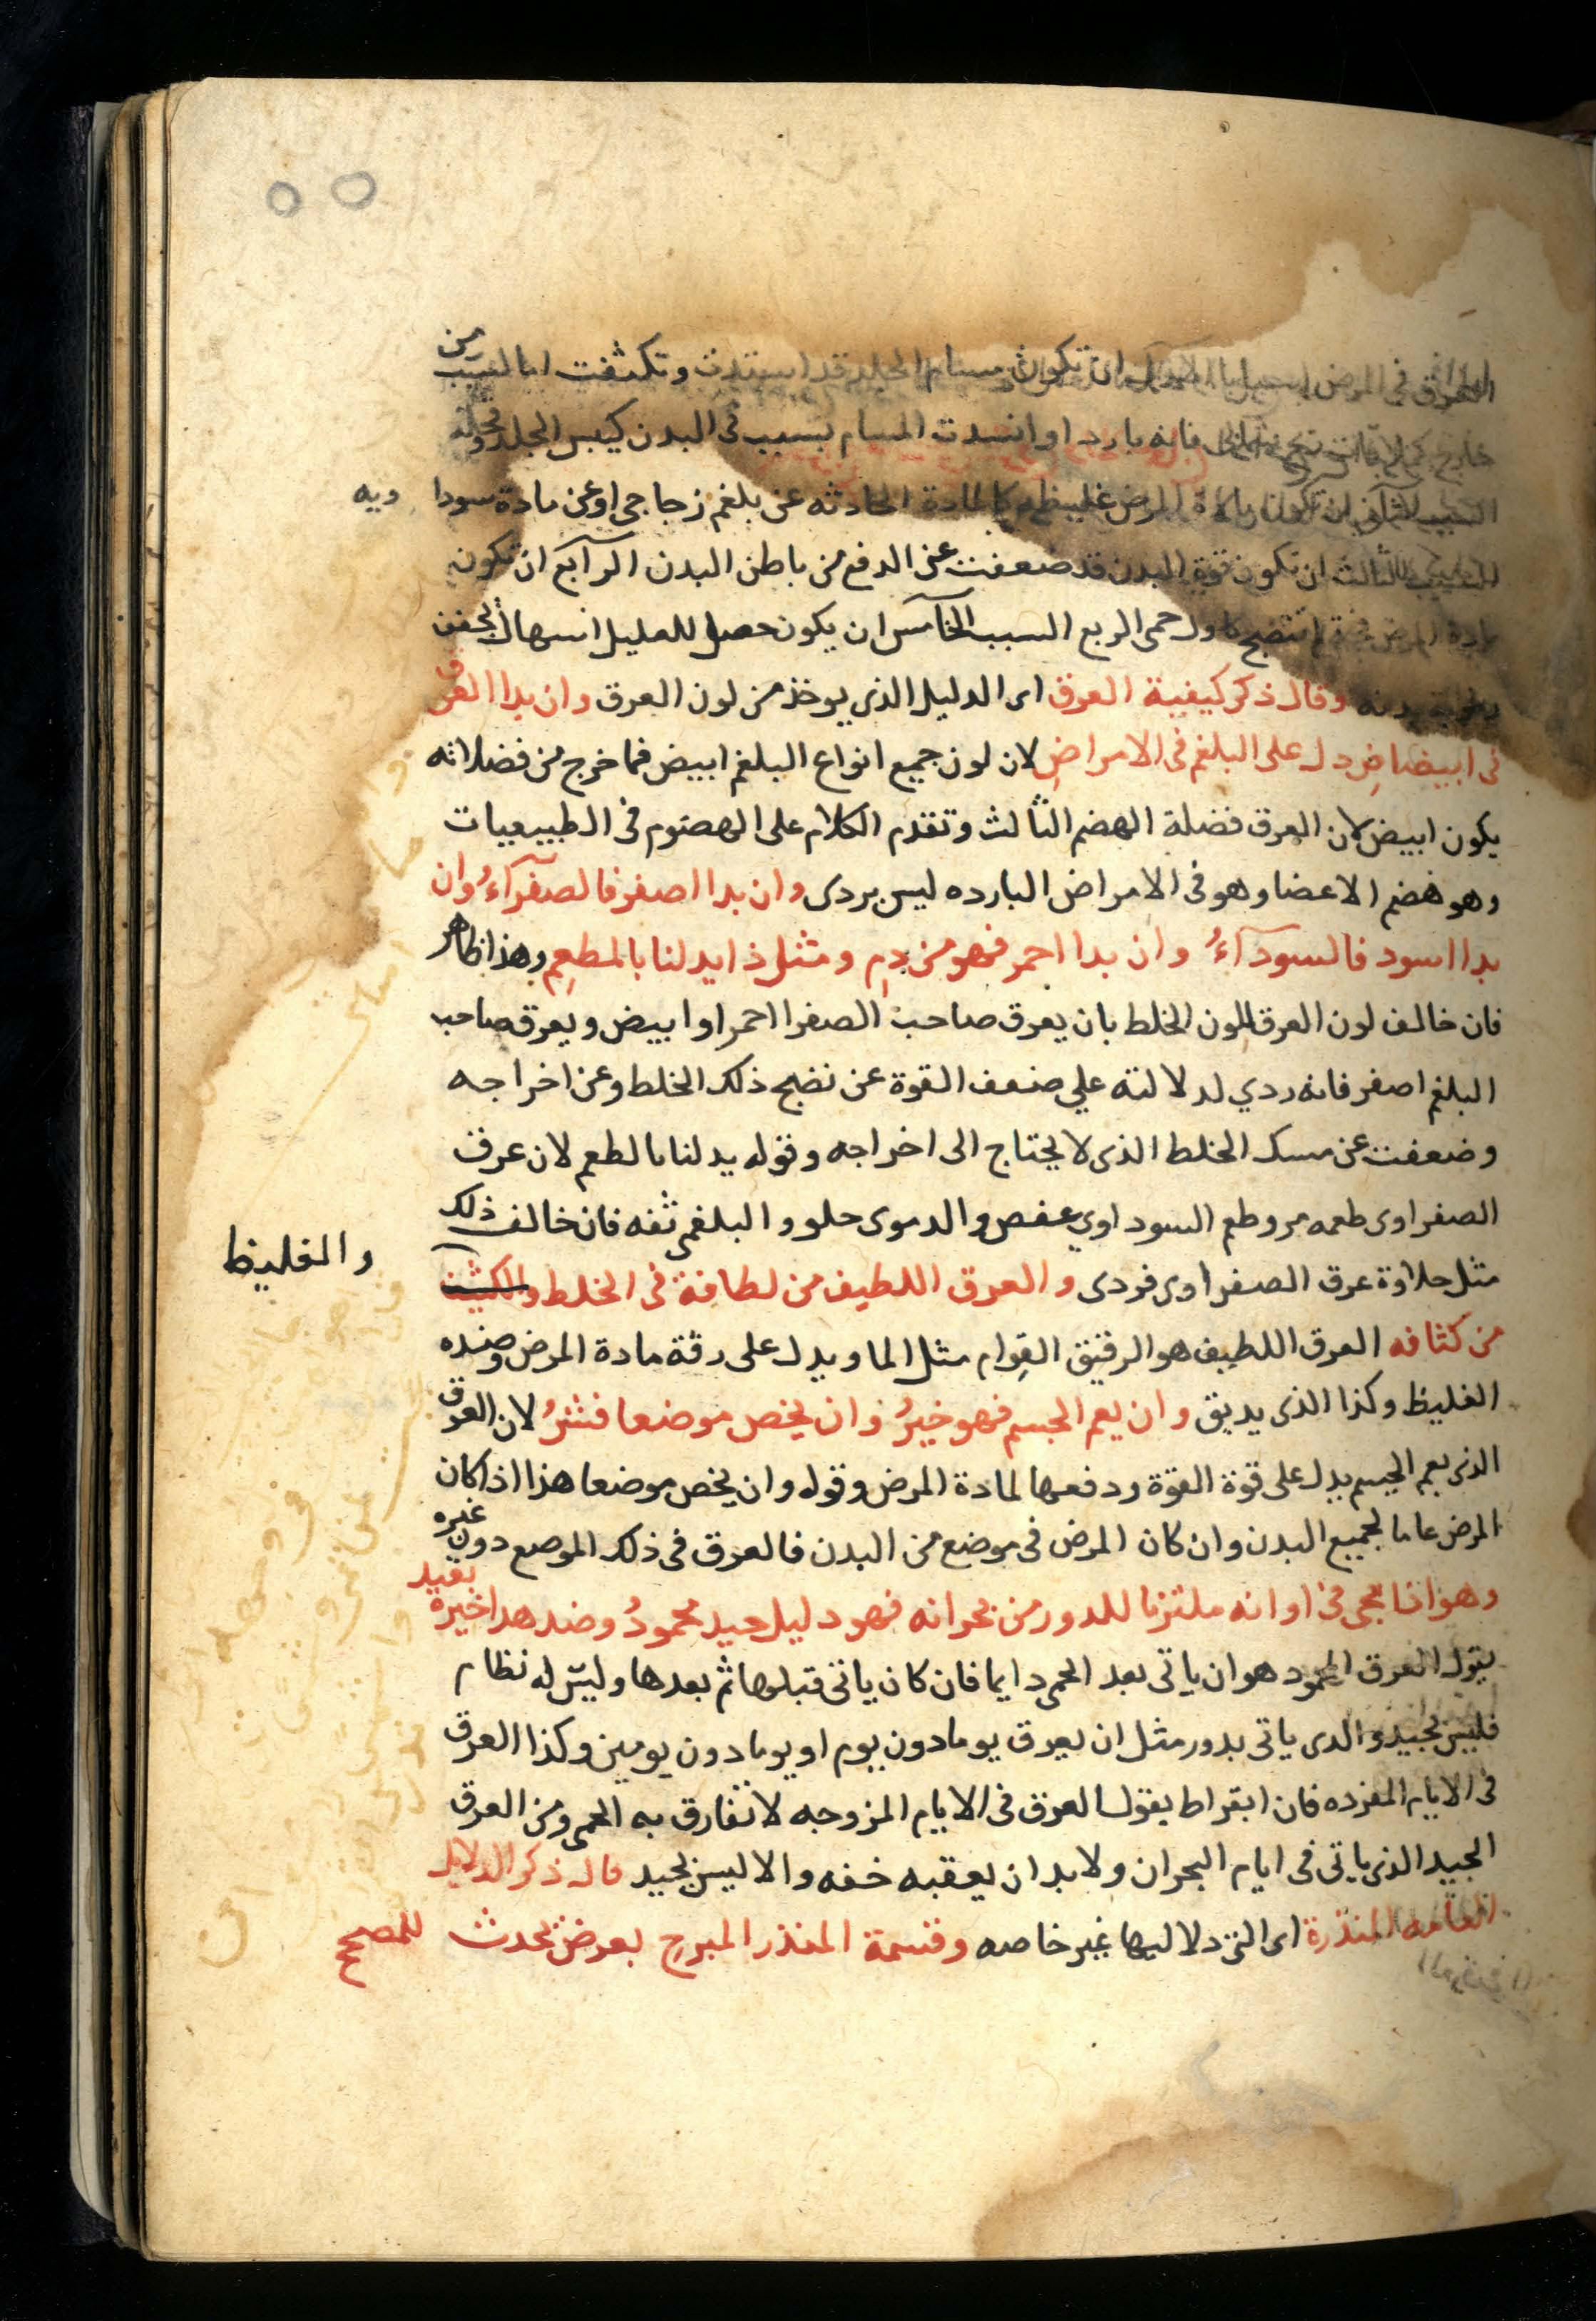 العرق في المرض ان تكون مسام الجلد قد استدت وتكثفت اما لسبب من
خارج فانه بارد او انسدت المسام بسبب في البدن كيبس الجلد وقحله
ان تكون مادة المرض غليظه كالمادة الحادثه عن بلغم زجاجي او عن مادة سودا ويه
الثالث ان تكون قوة البدن قد ضعفت عن الدفع من باطن البدن الرابع ان تكون
مادة المرض لم تنضج كاول حمى الربع السبب الخامس ان يكون حصل للعليل اسهال يجفف
وقال ذكر كيفية العرق اى الدليل الذى يوخذ من لون العرق وان بدا العرق
فى ابيضاض دل على البلغم فى الامراض لان لون جميع انواع البلغم ابيض فما خرج من فضلاته
يكون ابيض لان العرق فضلة الهضم الثالث وتقدم الكلام على الهضوم فى الطبيعيات
وهو هضم الاعضا وهو فى الامراض البارده ليس بردى وان بدا اصفر فالصفرآء وان
بدا اسود فالسودآءُ وان بدا احمر فهو من دم ومثل ذا يدلنا بالمطعم وهذا ظاهر
فان خالف لون العرق للون الخلط بان يعرق صاحب الصفرا احمر او ابيض ويعرق صاحب
البلغم اصفر فانه ردي لدلالته علي ضعف القوة عن نضج ذلك الخلط وعن اخراجه
وضعفت عن مسك الخلط الذى لا يحتاج الى اخراجه وقوله يدلنا بالطعم لان عرق
الصفراوى طعمه مر وطعم السوداوي عفص والدموى حلو والبلغمى تفه فان خالف ذلك
مثل حلاوة عرق الصفراوى فردى والعرق اللطيف من لطافة فى الخلط والكثيف
والغليظ
من كثافه العرق اللطيف هو الرقيق القوام مثل الما ويدل على رقة مادة المرض وضده
الغليظ وكذا الذى يديق وان يعم الجسم فهو خيرُ وان يخص موضعا فشرُ لان العرق
الذى يعم الجسم يدل على قوة القوة ودفعها لمادة المرض وقوله وان يخص موضعا هذا اذا كان
المرض عاما لجميع البدن وان كان المرض فى موضع من البدن فالعرق فى ذلك الموضع دون غيره
وهو اذا يجى فى اوانه ملتزما للدور من بحرانه فهو دليل جيد محمودُ وضد هدا خيره بعيد
يقول العرق المحمود هو ان ياتى بعد الحمى دايما فان كان ياتى قبلها ثم بعدها وليس له نظام
فليس بجيد والدى ياتى بدور مثل ان يعرق يوما دون يوم او يوما دون يومين وكذا العرق
فى الايام المفرده فان ابقراط يقول العرق فى الايام المزوجه لا تفارق به الحمى ومن العرق
الجيد الذى ياتى فى ايام البحران ولا بد ان يعقبه خفه والا ليس بجيد قال ذكر الدلايل
العامه المنذرة اى التى دلاليها غير خاصه وقسمة المنذر المبرح بعرض يحدث للمصحح